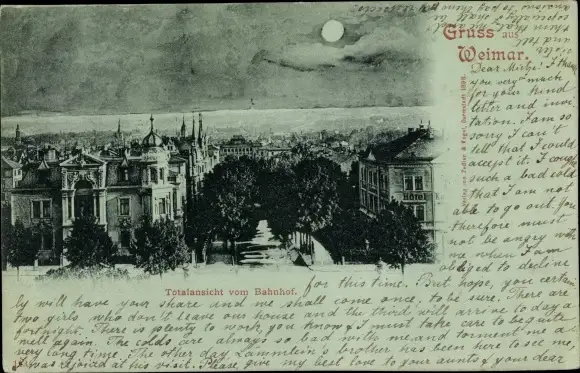 Gruss aus
Weimar.
Dear Michi! I thank
you very much
for your kind
letter and invi
tation. I am so
sorry I can't
tell that I could
accept it. I caught
such a bad cold
that I am not
able to go out. You
therefore must
not be angry with
me when I am
obliged to decline
for this time. But hope, you certain
ly will have your share and we shall come once, to be sure. There are
two girls who don't leave our house and the third will arrive to day a
fortnight. There is plenty to work, you know & I must take care to be quite
well again. The colds are always so bad with me and torment me a
very long time. The other day Lämmlein's brother has been here to see me,
I was rejoiced at this visit. Please, give my best love to your aunts & your dear
HÔTEL
Totalansicht vom Bahnhof.
Verlag von Zedler & Vogel, Darmstadt 1898.